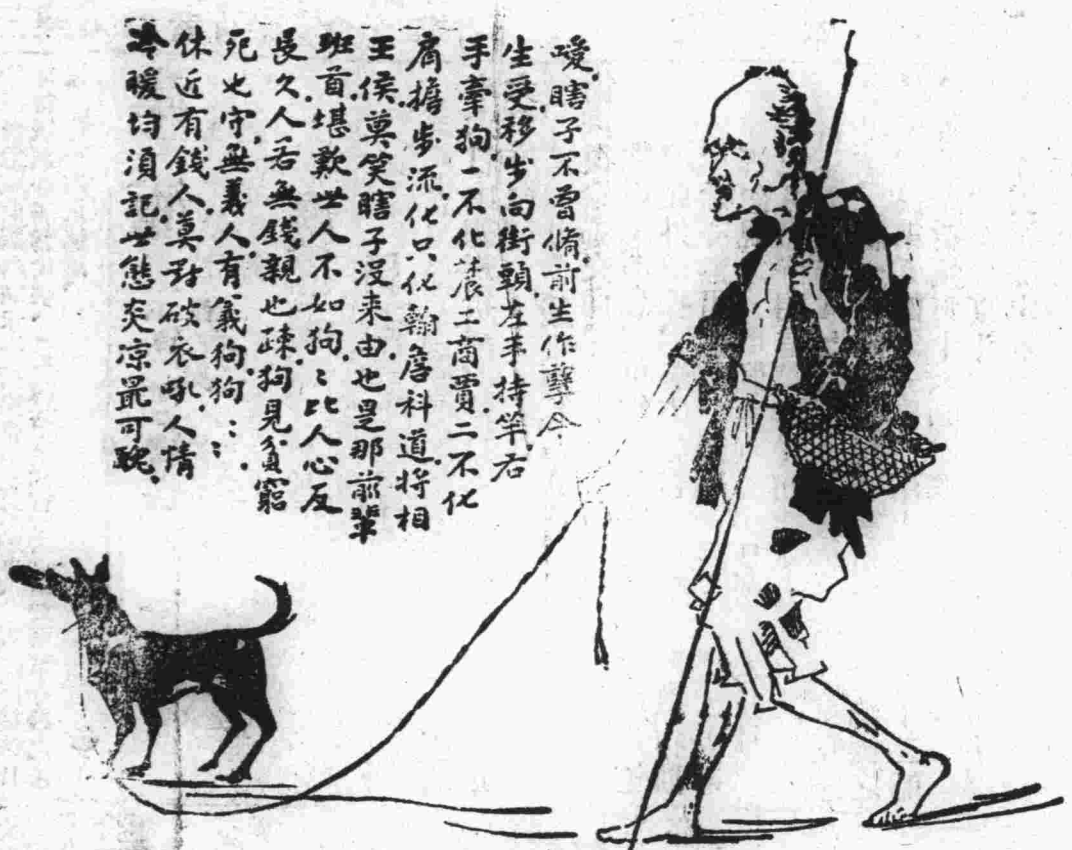 噯瞎子不曾脩前生作孽今
生受移步向街頭左手持竿右
手牽狗一不化農工商賈二不化
肩擔步流化只化翰詹科道將相
王侯莫笑瞎子沒来由也是那前輩
班首堪歎世人不如狗〻比人心反
長久人若無錢親也踈狗見貧窮
死也守無義人有義狗狗〻〻
休近有錢人莫對破衣吼人情
冷暖均須記世態炎凉最可醜